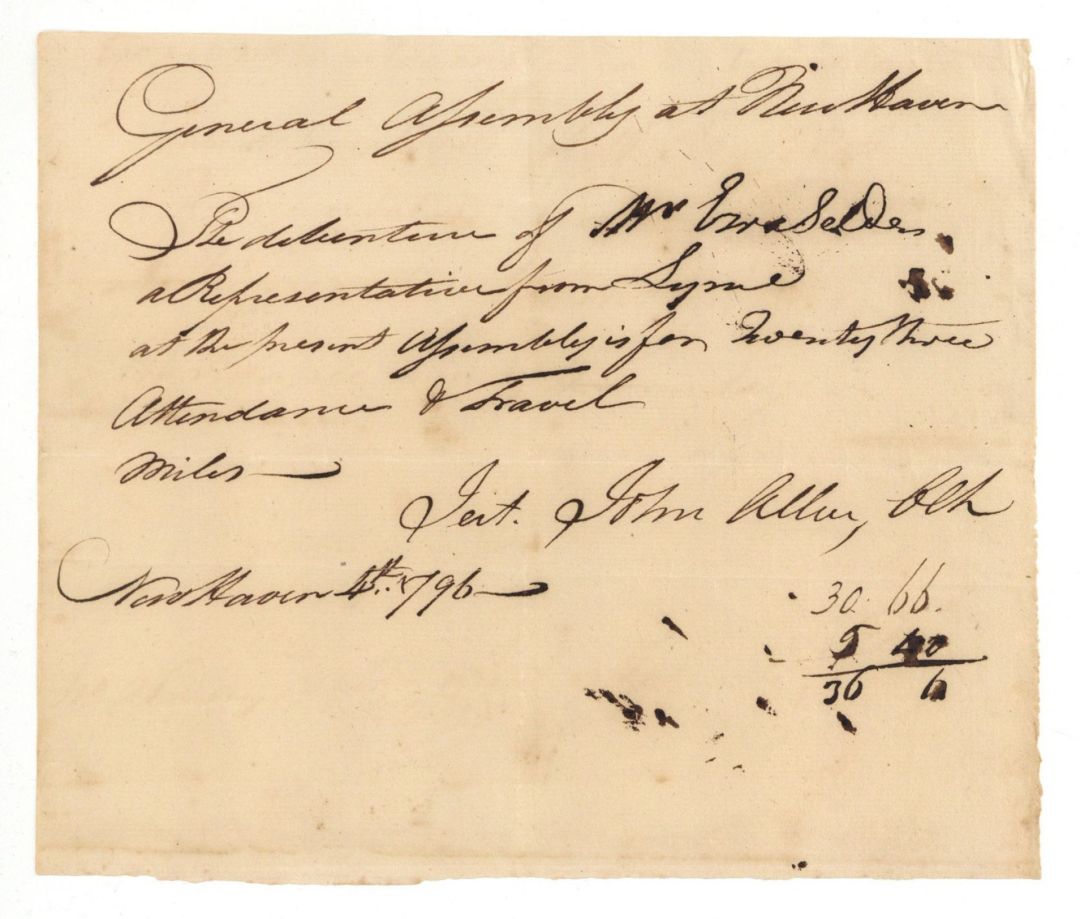 General Assembly at New Haven
The debenture of Mr Ezra Selden
a Representative from Lyme
at the present Assembly is for Twenty three
Attendance & Travel
Miles
Test. John Allen, Clk
New Haven 4th. 1796
30. 66.
5 40
36 6